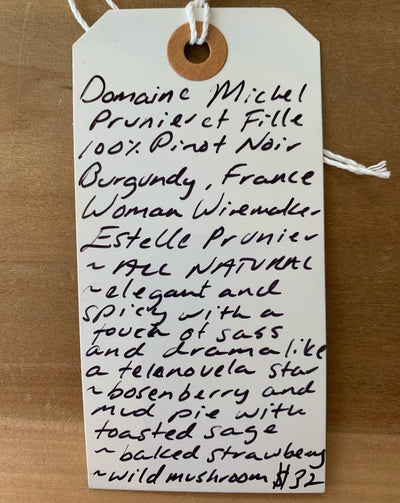 Domaine Michel
Prunier et Fille
100% Pinot Noir
Burgundy, France
Woman Winemaker
Estelle Prunier
~ ALL NATURAL
~elegant and
spicy with a
touch of sass
and drama like
a telenovela star
~bosenberry and
mud pie with
toasted sage
~baked strawberry
~wild mushroom $32